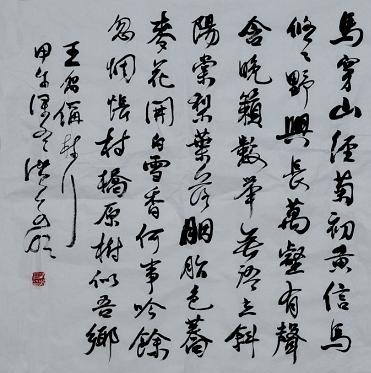 馬穿山徑菊初黄信馬
悠々野興長萬壑有聲
含晚籟數峯無語立斜
陽棠梨葉落胭脂色蕎
麥花開白雪香何事吟餘
忽惆悵村橋原樹似吾鄉
王禹偁村行
甲午